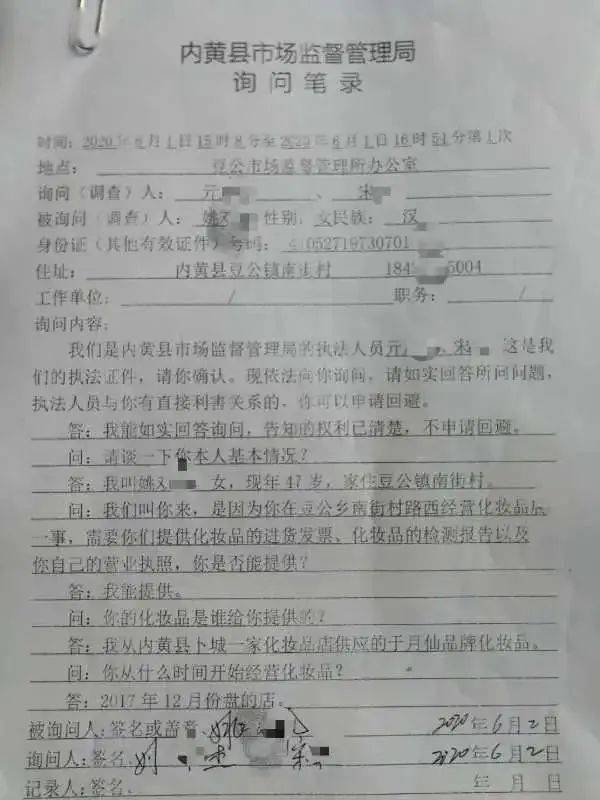 内黄县市场监督管理局
询问笔录
时间：2020年6月1日15时8分至2020年6月1日16时54分第1次
地点：豆公市场监督管理所办公室
询问（调查）人：元、宋
被询问（调查）人：姚 性别：女民族：汉
身份证（其他有效证件）号码：4 052719730701
住址：内黄县豆公镇南街村 184 5004
工作单位：/ 职务：/
询问内容：
我们是内黄县市场监督管理局的执法人员元、宋 这是我
们的执法证件，请你确认。现依法向你询问，请如实回答所问问题，
执法人员与你有直接利害关系的，你可以申请回避。
答：我能如实回答询问，告知的权利已清楚，不申请回避。
问：请谈一下你本人基本情况？
答：我叫姚 女，现年47岁，家住豆公镇南街村。
问：我们叫你来，是因为你在豆公乡南街村路西经营化妆品店
一事，需要你们提供化妆品的进货发票、化妆品的检测报告以及
你自己的营业执照，你是否能提供？
答：我能提供。
问：你的化妆品是谁给你提供的？
答：我从内黄县卜城一家化妆品店供应的于月仙品牌化妆品。
问：你从什么时间开始经营化妆品？
答：2017年12月份盘的店。
被询问人：签名或盖章 2020年6月2日
询问人：签名 2020年6月2日
记录人：签名 年 月 日